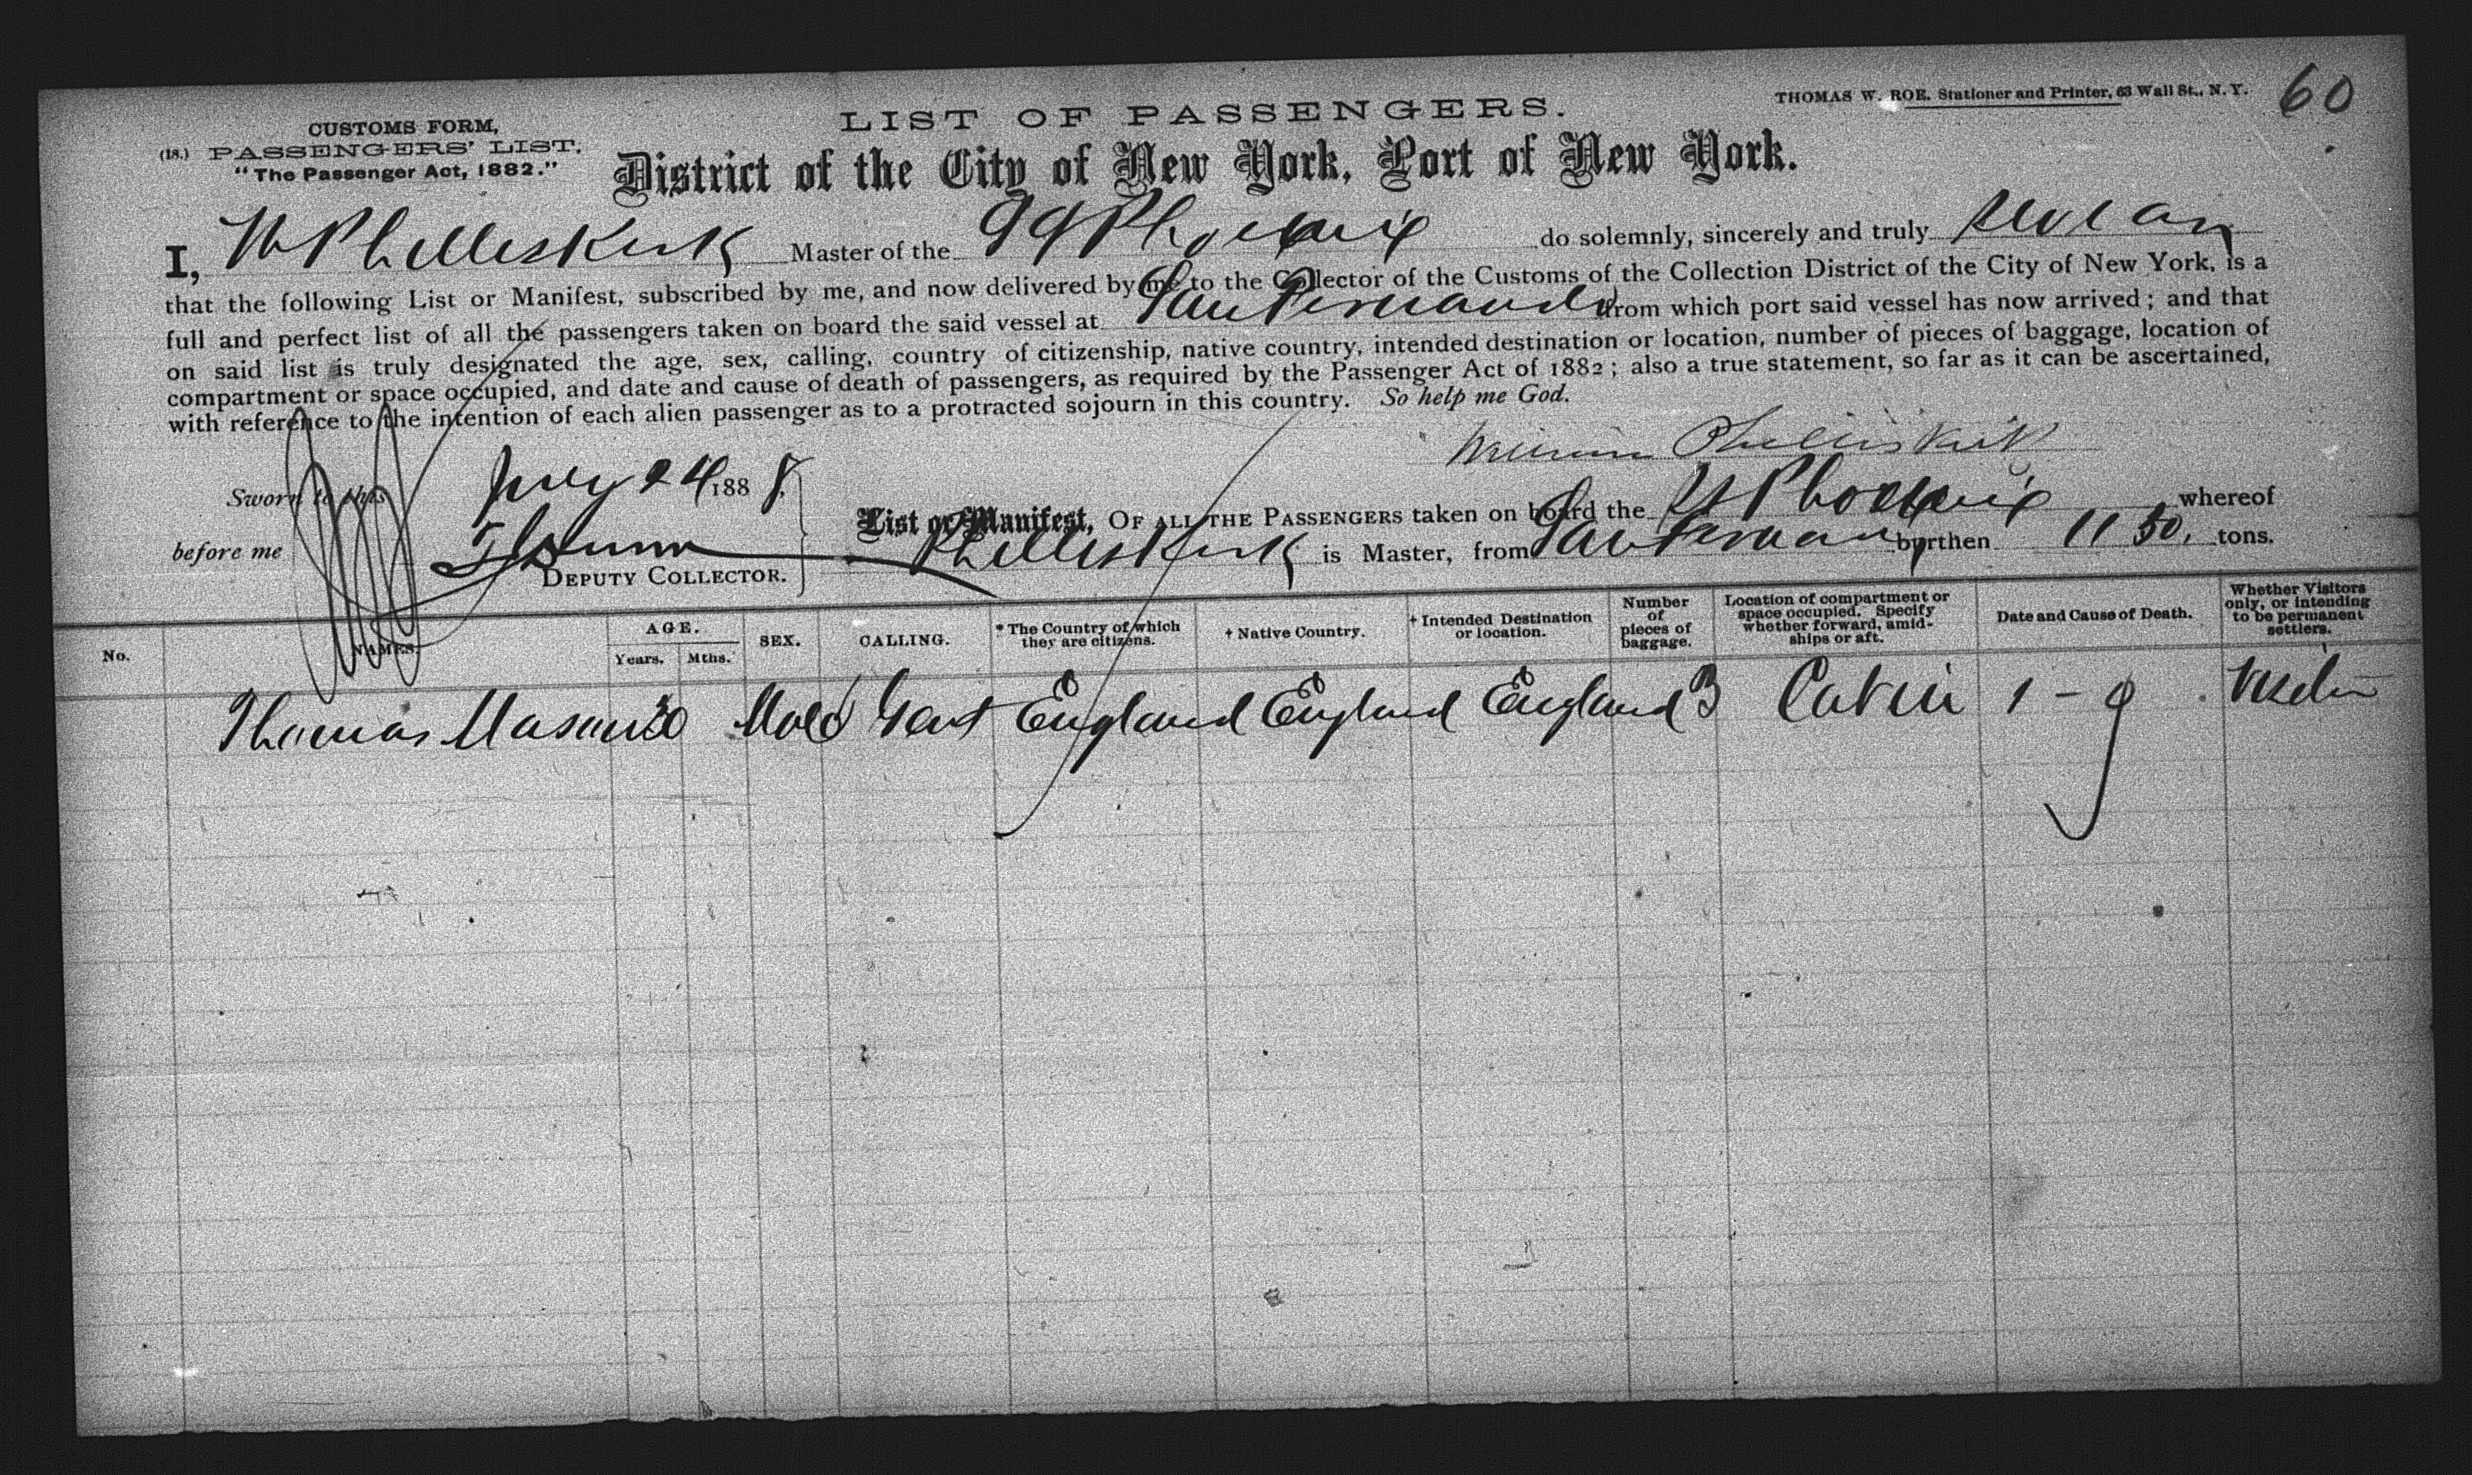 60
THOMAS W. ROE, Stationer and Printer, 63 Wall St., N. Y.
LIST OF PASSENGERS.
CUSTOMS FORM,
(18.) PASSENGERS' LIST.
"The Passenger Act, 1882."
District of the City of New York, Port of New York.
I, W Philliskirk Master of the SS Phoenix do solemnly, sincerely and truly swear
that the following List or Manifest, subscribed by me, and now delivered by me to the Collector of the Customs of the Collection District of the City of New York, is a
full and perfect list of all the passengers taken on board the said vessel at San Fernando from which port said vessel has now arrived; and that
on said list is truly designated the age, sex, calling, country of citizenship, native country, intended destination or location, number of pieces of baggage, location of
compartment or space occupied, and date and cause of death of passengers, as required by the Passenger Act of 1882; also a true statement, so far as it can be ascertained,
with reference to the intention of each alien passenger as to a protracted sojourn in this country. So help me God.
William Philliskirk
Sworn to this July 24 1888
before me Dunn
DEPUTY COLLECTOR.
List or Manifest, OF ALL THE PASSENGERS taken on board the SS Phoenix whereof
Philliskirk is Master, from San Fernan burthen 1150. tons.
No. NAMES. AGE. Years. Mths. SEX. CALLING. * The Country of which they are citizens. † Native Country. † Intended Destination or location. Number of pieces of baggage. Location of compartment or space occupied. Specify whether forward, amidships or aft. Date and Cause of Death. Whether Visitors only, or intending to be permanent settlers.
Thomas Mason 30 Male Gent England England England 3 Cabin 1 -